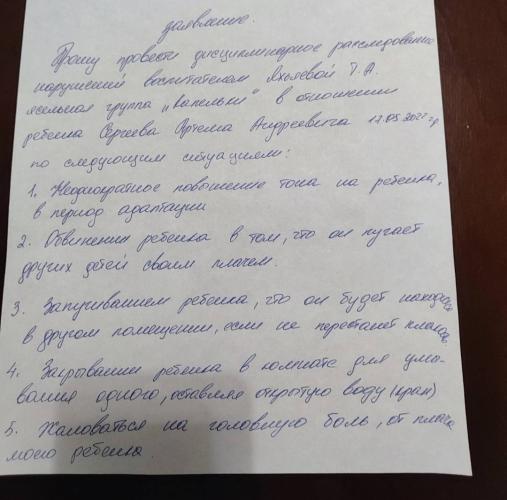 заявление.
Прошу провести дисциплинарное расследование
нарушений воспитателем Т. А.
ясельная группа „Капельки" в отношении
ребенка Сергеева Артема Андреевича 17.05.2021 г.р
по следующим ситуациям:
1. Неоднократное повышение тона на ребенка,
в период адаптации
2. Обвинении ребенка в том, что он пугает
других детей своим плачем.
3. Запугиванием ребенка, что он будет находиться
в другом помещении, если не перестанет плакать
4. Закрывании ребенка в комнате для умы-
вания одного, оставляя открытую воду (кран)
5. Жаловаться на головную боль, от плача
моего ребенка.